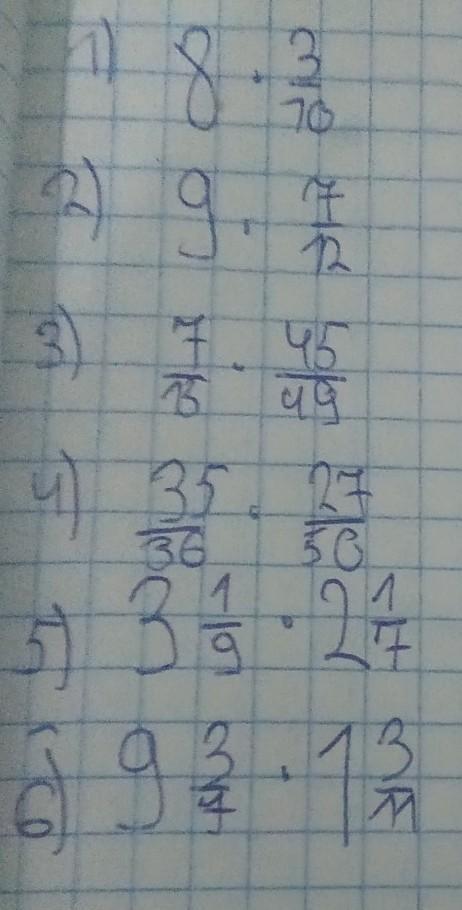 1) 8 · 3/10
2) 9 · 7/12
3) 7/15 · 45/49
4) 35/36 · 27/56
5) 3 1/9 · 2 1/7
6) 9 3/7 · 1 3/11